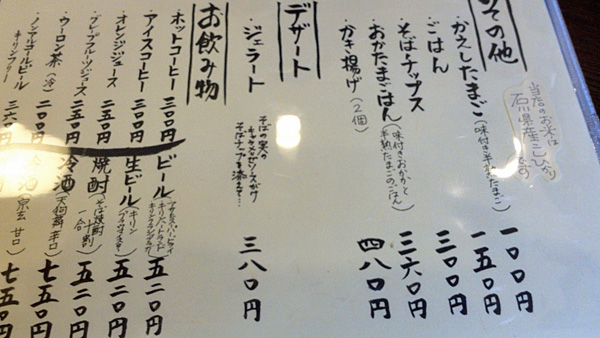 その他
当店のお米は
石川県産こしひかり
です
かえしたまご(味付き半熟たまご) 一００円
ごはん 一五０円
そば・チップス 三００円
おかたまごはん(味付きおかかと半熟たまごのごはん) 三六０円
かき揚げ(2個) 四八０円
デザート
・ジェラート 三八０円
そばの実の
キャラメルソースがけ
そばチップを添えて…
お飲み物
・ホットコーヒー 三００円
・アイスコーヒー 三００円
・オレンジジュース 二五０円
・グレープフルーツジュース 二五０円
・ウーロン茶(冷) 二００円
・ノンアルコールビール 三六０円
キリンフリー
ビール 五二０円
生ビール(キリンブラウマイスター) 五二０円
焼酎(そば焼酎 一合 割) 五二０円
冷酒(天狗舞 辛口) 七五０円
冷酒(宗玄 甘口) 七五０円